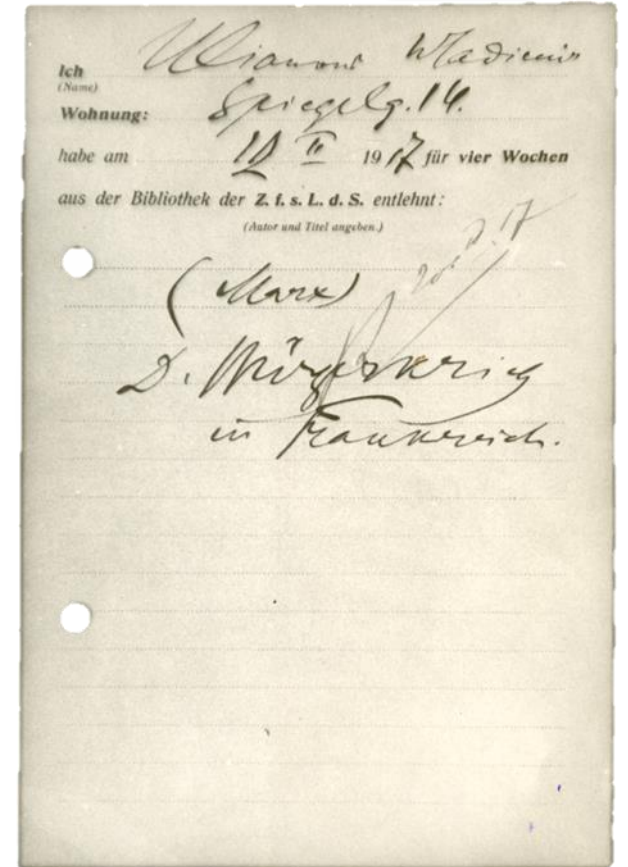 Ich Ulianow Wladimir
(Name)
Wohnung: Spiegelg. 14.
habe am 12 II 1917 für vier Wochen
aus der Bibliothek der Z. f. s. L. d. S. entlehnt:
(Autor und Titel angeben.)
(Marx)
D. Bürgerkrieg
in Frankreich.